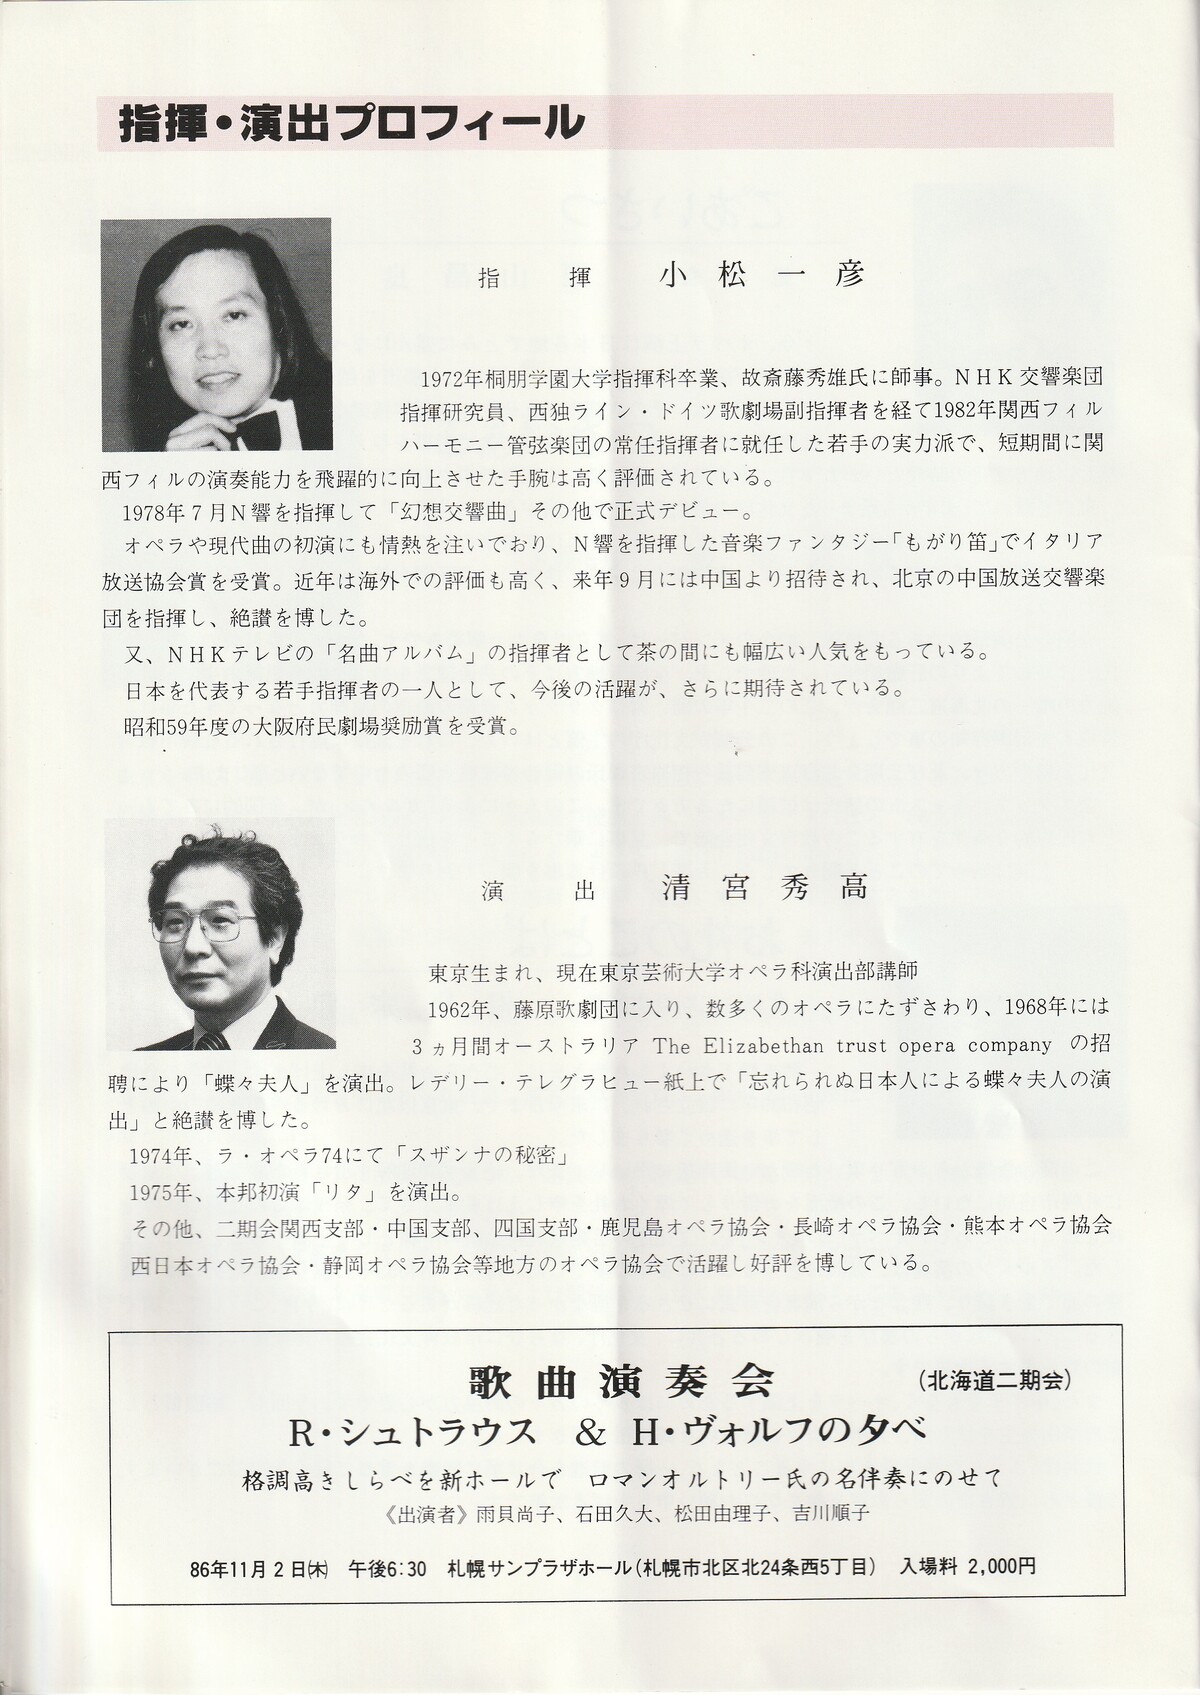 指揮・演出プロフィール
指 揮 小松一彦
1972年桐朋学園大学指揮科卒業、故斎藤秀雄氏に師事。NHK交響楽団
指揮研究員、西独ライン・ドイツ歌劇場副指揮者を経て1982年関西フィル
ハーモニー管弦楽団の常任指揮者に就任した若手の実力派で、短期間に関
西フィルの演奏能力を飛躍的に向上させた手腕は高く評価されている。
1978年7月N響を指揮して「幻想交響曲」その他で正式デビュー。
オペラや現代曲の初演にも情熱を注いでおり、N響を指揮した音楽ファンタジー「もがり笛」でイタリア
放送協会賞を受賞。近年は海外での評価も高く、来年9月には中国より招待され、北京の中国放送交響楽
団を指揮し、絶讃を博した。
又、NHKテレビの「名曲アルバム」の指揮者として茶の間にも幅広い人気をもっている。
日本を代表する若手指揮者の一人として、今後の活躍が、さらに期待されている。
昭和59年度の大阪府民劇場奨励賞を受賞。
演 出 清宮秀高
東京生まれ、現在東京芸術大学オペラ科演出部講師
1962年、藤原歌劇団に入り、数多くのオペラにたずさわり、1968年には
3ヵ月間オーストラリア The Elizabethan trust opera company の招
聘により「蝶々夫人」を演出。レデリー・テレグラヒュー紙上で「忘れられぬ日本人による蝶々夫人の演
出」と絶讃を博した。
1974年、ラ・オペラ74にて「スザンナの秘密」
1975年、本邦初演「リタ」を演出。
その他、二期会関西支部・中国支部、四国支部・鹿児島オペラ協会・長崎オペラ協会・熊本オペラ協会
西日本オペラ協会・静岡オペラ協会等地方のオペラ協会で活躍し好評を博している。
歌曲演奏会 (北海道二期会)
R・シュトラウス & H・ヴォルフの夕べ
格調高きしらべを新ホールで ロマンオルトリー氏の名伴奏にのせて
《出演者》雨貝尚子、石田久大、松田由理子、吉川順子
86年11月2日㈭ 午後6:30 札幌サンプラザホール(札幌市北区北24条西5丁目) 入場料 2,000円